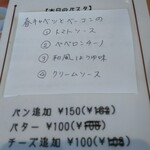 【本日のパスタ】
春キャベツとベーコンの
① トマトソース
② ペペロンチーノ
③ 和風しょうゆ味
④ クリームソース
パン追加 ¥150(¥162)
バター ¥100(¥108)
チーズ追加 ¥100(¥108)